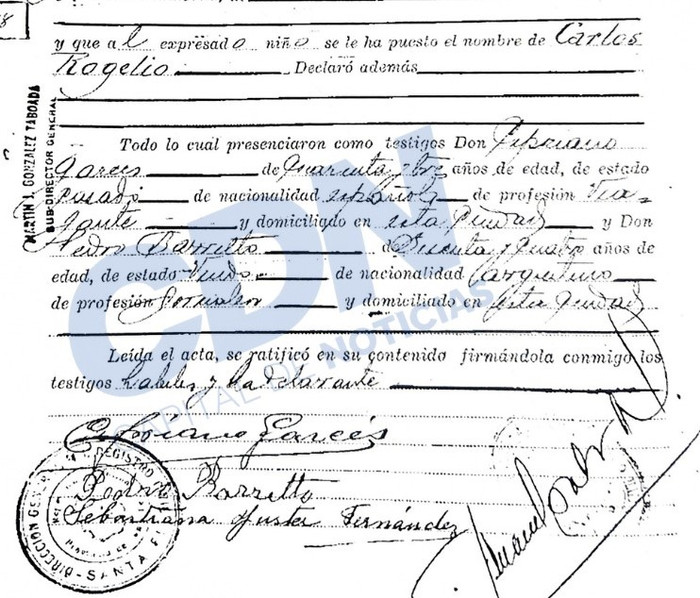 y que al expresado niño se le ha puesto el nombre de Carlos
Rogelio Declaró además
Todo lo cual presenciaron como testigos Don Cipriano
Garces de Cuarenta y tres años de edad, de estado
casado de nacionalidad española de profesión Via-
jante y domiciliado en esta Ciudad y Don
Barretto de y cuatro años de
edad, de estado Viudo de nacionalidad Argentino
de profesión Jornalero y domiciliado en esta Ciudad
Leída el acta, se ratificó en su contenido firmándola conmigo los
testigos y la declarante
Cipriano Garcés
Barretto
Sebastiana Fuster Fernández
MARTIN J. GONZALEZ TABOADA
SUB-DIRECTOR GENERAL
DIRECCION GENERAL REGISTRO
SANTA FE
CDN
CAPITAL DE NOTICIAS